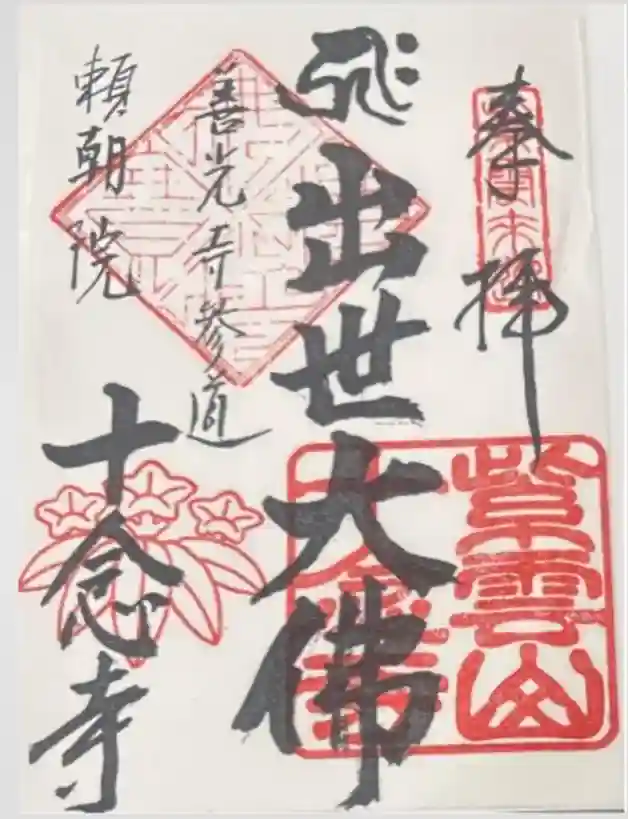 奉拝
紫雲山
出世大佛
善光寺参道
頼朝院
十念寺